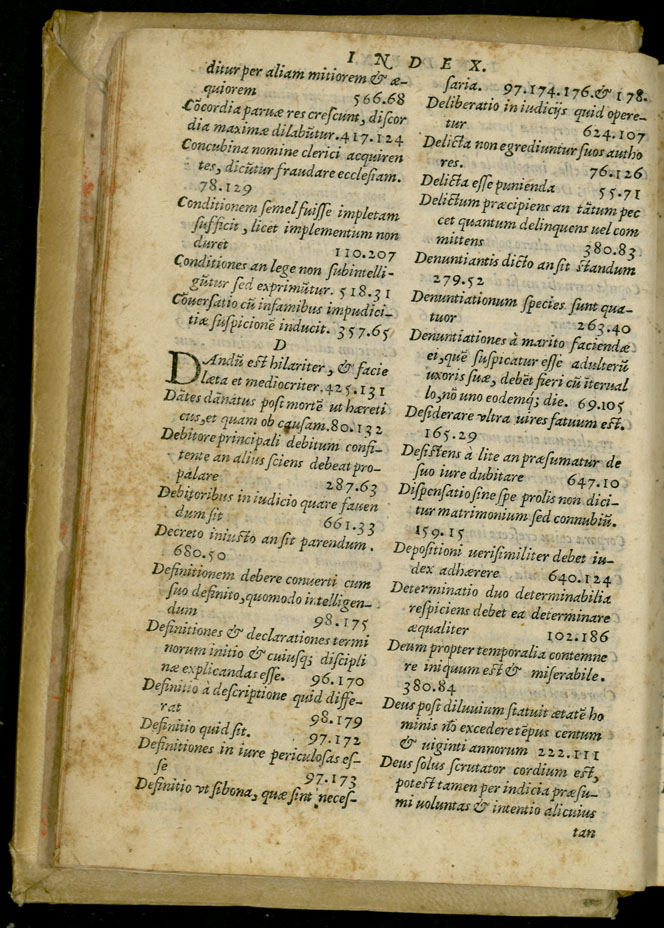 INDEX.
ditur per aliam mitiorem & æ-
quiorem 566.68
Cõcordia paruæ res crescunt, discor
dia maximæ dilabũtur. 417.124
Concubina nomine clerici acquiren
tes, dicũtur fraudare ecclesiam.
78.129
Conditionem semel fuisse impletam
sufficit, licet implementum non
duret 110.207
Conditiones an lege non subintelli-
gũtur sed exprimũtur. 518.31
Cõuersatio cũ infamibus impudici-
tiæ suspicionẽ inducit. 357.65
D
DAndũ est hilariter, & facie
læta et mediocriter. 425.131
Dãtes dãnatus post mortẽ ut hæreti
cus, et quam ob causam. 80.132
Debitore principali debitum confi-
tente an alius sciens debeat pro-
palare 287.63
Debitoribus in iudicio quare fauen
dum sit 661.33
Decreto iniusto an sit parendum.
680.50
Definitionem debere conuerti cum
suo definito, quomodo intelligen-
dum 98.175
Definitiones & declarationes termi
norum initio & cuiusq; discipli
næ explicandas esse. 96.170
Definitio à descriptione quid diffe-
rat 98.179
Definitio quid sit. 97.172
Definitiones in iure periculosas es-
se 97.173
Definitio vt sibona, quæ sint neces-
saria. 97.174.176.& 178.
Deliberatio in iudicijs quid opere-
tur 624.107
Delicta non egrediuntur suos autho
res. 76.126
Delicta esse punienda 55.71
Delictum præcipiens an tãtum pec
cet quantum delinquens uel com
mittens 380.83
Denuntiantis dicto an sit standum
279.52
Denuntiationum species sunt qua-
tuor 263.40
Denuntiationes à marito faciendæ
ei, quẽ suspicatur esse adulterũ
uxoris suæ, debẽt fieri cũ iteruал
lo, nõ uno eodemq; die. 69.105
Desiderare vltra uires fatuum est.
165.29
Desistens à lite an præsumatur de
suo iure dubitare 647.10
Dispensatio sine spe prolis non dici-
tur matrimonium sed connubiũ.
159.15
Depositioni uerisimiliter debet iu-
dex adhærere 640.124
Determinatio duo determinabilia
respiciens debet ea determinare
æqualiter 102.186
Deum propter temporalia contemne
re iniquum est & miserabile.
380.84
Deus post diluuium statuit ætatẽ ho
minis nõ excedere tẽpus centum
& uiginti annorum 222.111
Deus solus scrutator cordium est,
potest tamen per indicia præsu-
mi uoluntas & intentio alicuius
tan